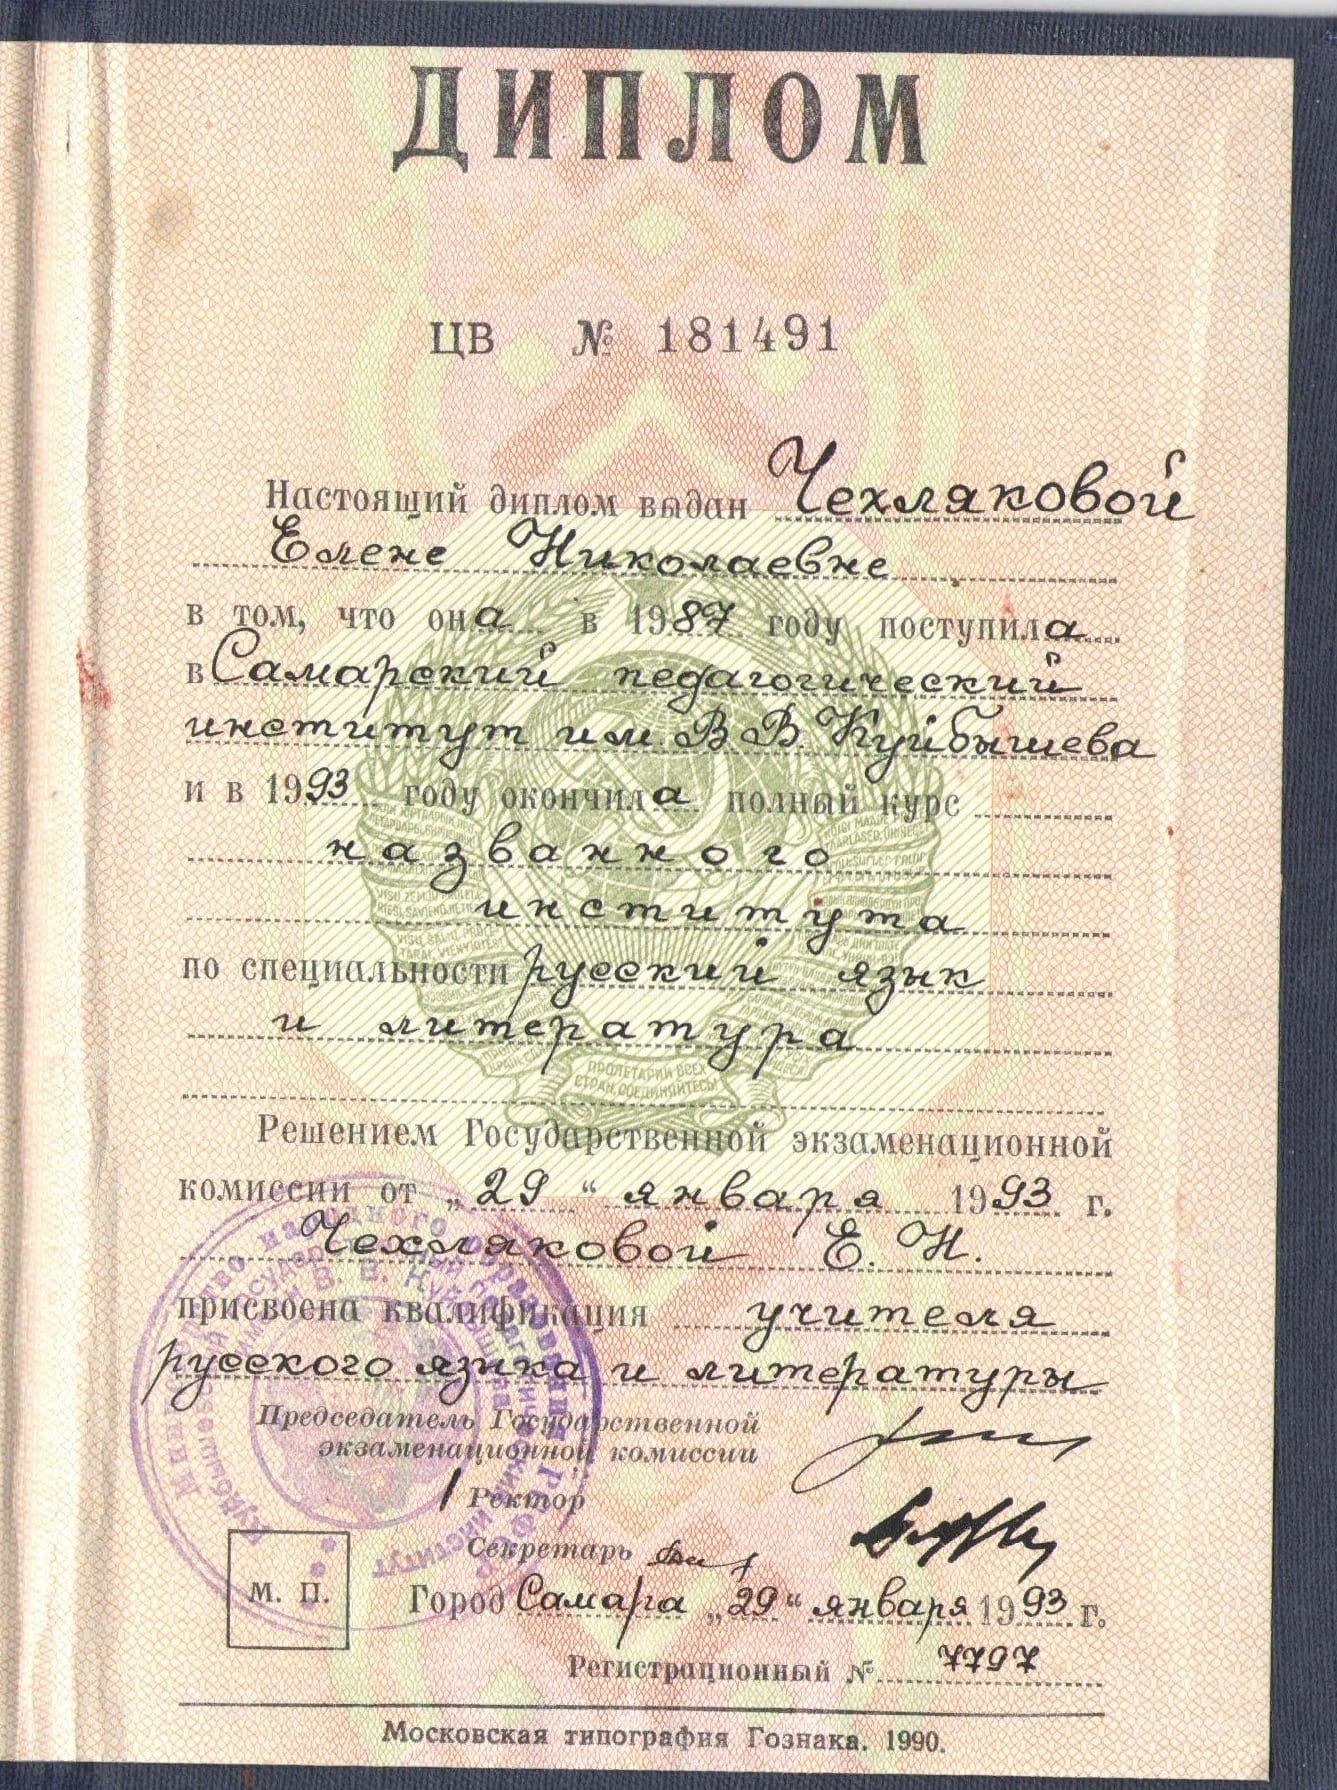 ДИПЛОМ
ЦВ № 181491
Настоящий диплом выдан Чехляковой
Елене Николаевне
в том, что она в 1987 году поступила
в Самарский педагогический
институт им. В.В. Куйбышева
и в 1993 году окончила полный курс
названного
института
по специальности русский язык
и литература
Решением Государственной экзаменационной
комиссии от „29“ января 1993 г.
Чехляковой Е. Н.
присвоена квалификация учителя
русского языка и литературы
Председатель Государственной
экзаменационной комиссии
Ректор
Секретарь
М. П.
Город Самара „29“ января 1993 г.
Регистрационный № 7797
Московская типография Гознака. 1990.
ПРОЛЕТАРИИ ВСЕХ
СТРАН, СОЕДИНЯЙТЕСЬ!